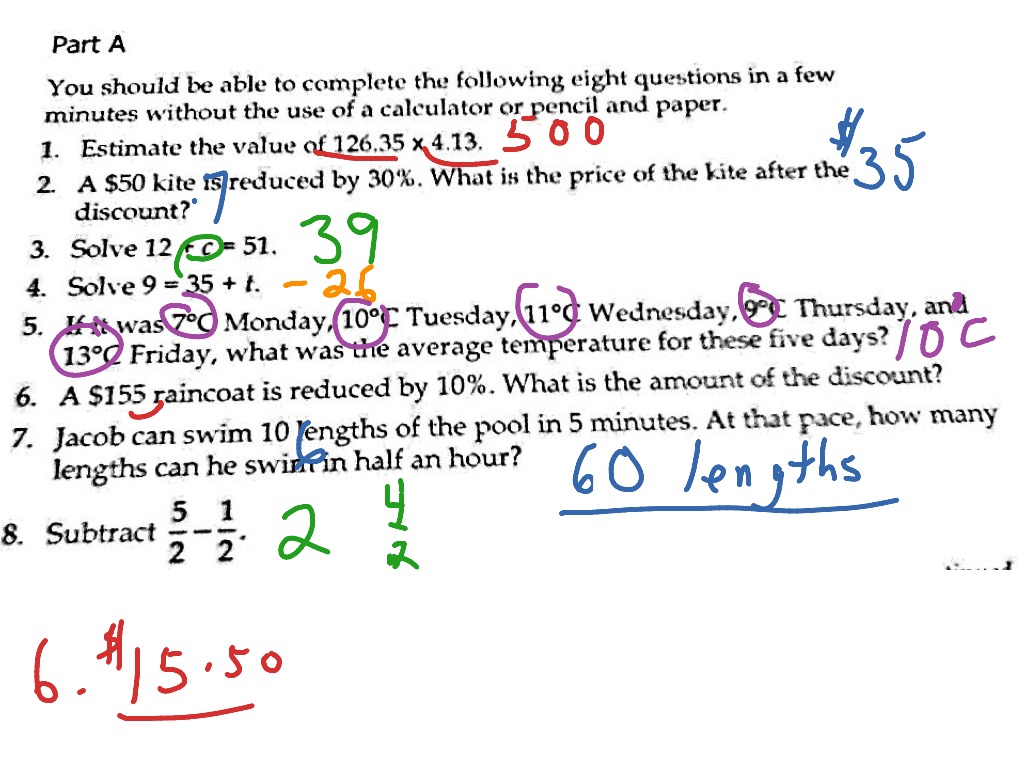 Part A
You should be able to complete the following eight questions in a few
minutes without the use of a calculator or pencil and paper.
1. Estimate the value of 126.35 x 4.13. 500
2. A $50 kite is reduced by 30%. What is the price of the kite after the $35
discount? 7
3. Solve 12 + c = 51. 39
4. Solve 9 = 35 + t. - 26
5. If it was 7°C Monday, 10°C Tuesday, 11°C Wednesday, 9°C Thursday, and
13°C Friday, what was the average temperature for these five days? 10 C
6. A $155 raincoat is reduced by 10%. What is the amount of the discount?
7. Jacob can swim 10 lengths of the pool in 5 minutes. At that pace, how many
lengths can he swim in half an hour? 6 60 lengths
8. Subtract 5/2 - 1/2. 2 4/2
6. $15.50